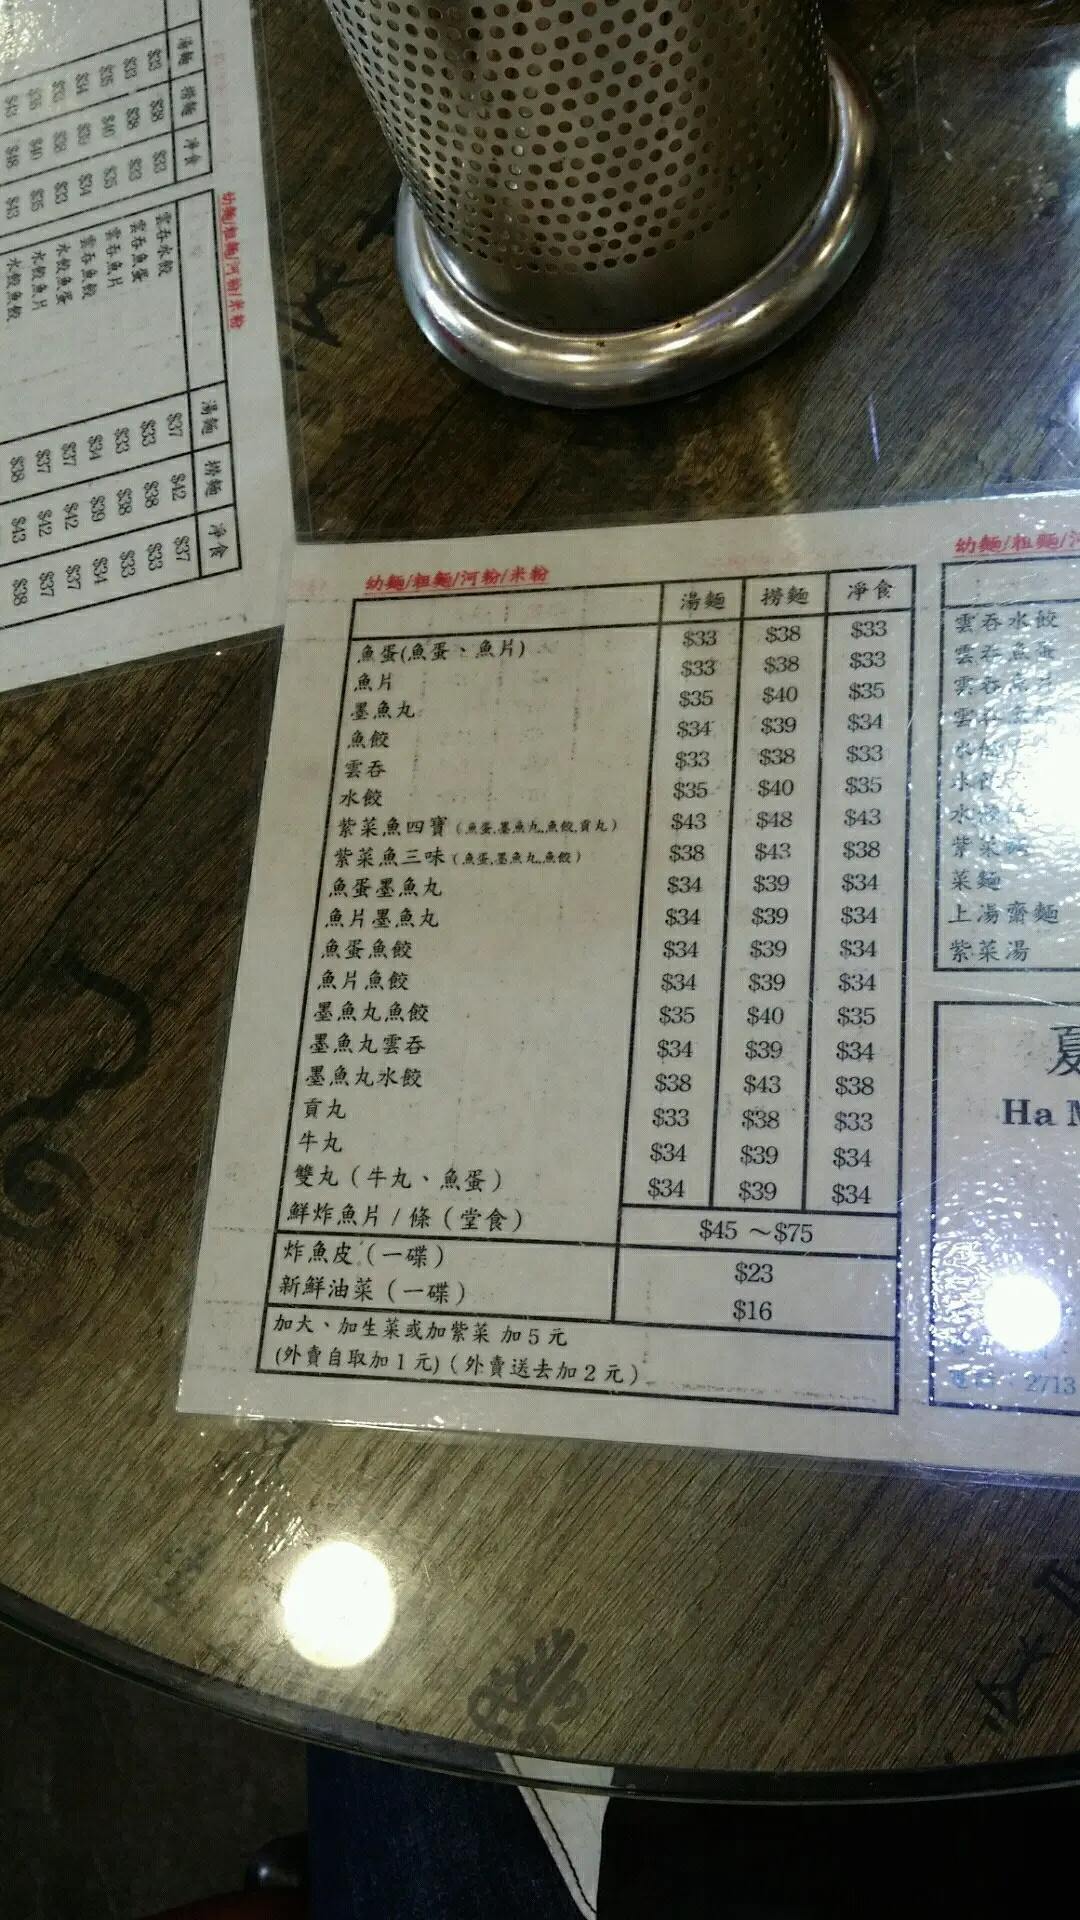 幼麵/粗麵/河粉/米粉
湯麵 撈麵 凈食
魚蛋(魚蛋、魚片) $33 $38 $33
魚片 $33 $38 $33
墨魚丸 $35 $40 $35
魚餃 $34 $39 $34
雲吞 $33 $38 $33
水餃 $35 $40 $35
紫菜魚四寶(魚蛋,墨魚丸,魚餃,貢丸) $43 $48 $43
紫菜魚三味(魚蛋,墨魚丸,魚餃) $38 $43 $38
魚蛋墨魚丸 $34 $39 $34
魚片墨魚丸 $34 $39 $34
魚蛋魚餃 $34 $39 $34
魚片魚餃 $34 $39 $34
墨魚丸魚餃 $35 $40 $35
墨魚丸雲吞 $34 $39 $34
墨魚丸水餃 $38 $43 $38
貢丸 $33 $38 $33
牛丸 $34 $39 $34
雙丸(牛丸、魚蛋) $34 $39 $34
鮮炸魚片/條(堂食) $45～$75
炸魚皮(一碟) $23
新鮮油菜(一碟) $16
加大、加生菜或加紫菜 加5元
(外賣自取加1元)(外賣送去加2元)
幼麵/粗麵/
雲吞水餃
雲吞魚蛋
雲吞
雲吞
水
水
紫菜
菜麵
上湯齋麵
紫菜湯
夏
Ha
2713
幼麵/粗麵/河粉/米粉
湯麵 撈麵 凈食
雲吞水餃 $37 $42 $37
雲吞魚蛋 $33 $38 $33
雲吞魚片 $33 $38 $33
雲吞魚餃 $34 $39 $34
水餃魚蛋 $37 $42 $37
水餃魚片 $37 $42 $37
水餃魚餃 $38 $43 $38
湯麵 撈麵 凈食
$33 $38 $33
$33 $38 $33
$35 $40 $35
$34 $39 $34
$33 $38 $33
$35 $40 $35
$43 $48 $43